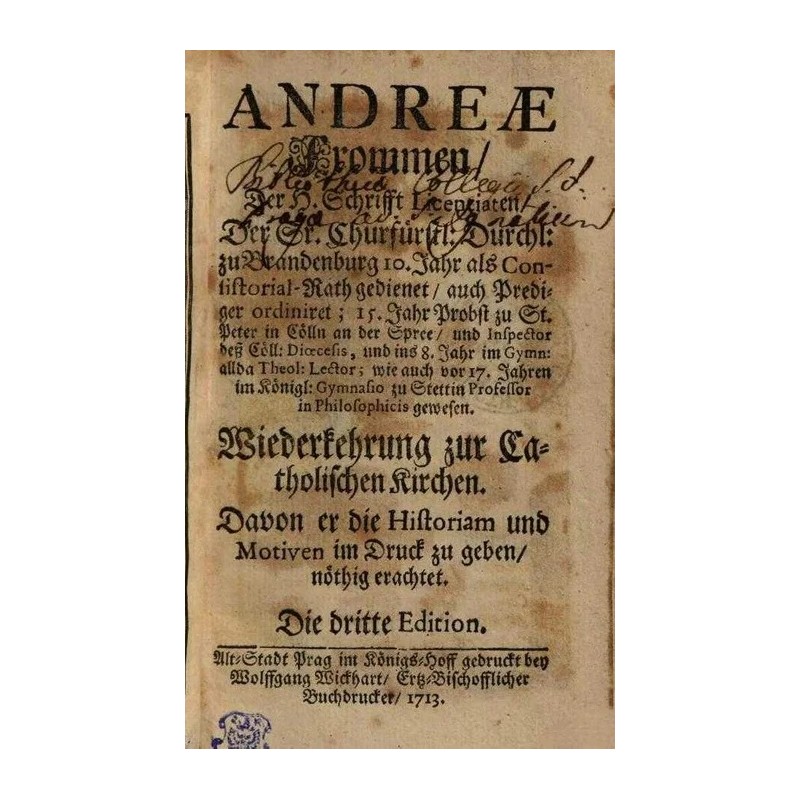 ANDREÆ
Frommen/
Bibliotheca Collegii S. J.
Der H. Schrifft Licentiaten/
Pragæ ad S. Ignatium
Der Sr. Churfürstl: Durchl:
zu Brandenburg 10. Jahr als Con-
sistorial-Rath gedienet/ auch Predi-
ger ordiniret; 15. Jahr Probst zu St.
Peter in Cölln an der Spree/ und Inspector
deß Cöll: Diœcesis, und ins 8. Jahr im Gymn:
allda Theol: Lector; wie auch vor 17. Jahren
im Königl: Gymnasio zu Stettin Professor
in Philosophicis gewesen.
Wiederkehrung zur Ca-
tholischen Kirchen.
Davon er die Historiam und
Motiven im Druck zu geben/
nöthig erachtet.
Die dritte Edition.
Alt-Stadt Prag im Königs-Hoff gedruckt bey
Wolffgang Wickhart/ Ertz-Bischofflicher
Buchdrucker/ 1713.